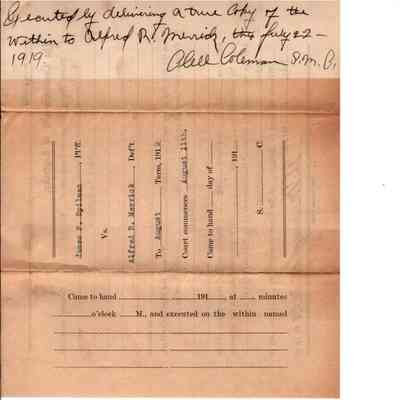 Executed by delivering a true Copy of the
within to Alfred R. Merrick, this July 22 –
1919.
Coleman S.M.C.
James F. Spilman, Pl'ff.
Vs.
Alfred R. Merrick, Def't.
To August Term, 191
Court commences August 11th,
Came to hand day of
, 191
S. C.
Came to hand , 191 , at minutes
o'clock M., and executed on the within named